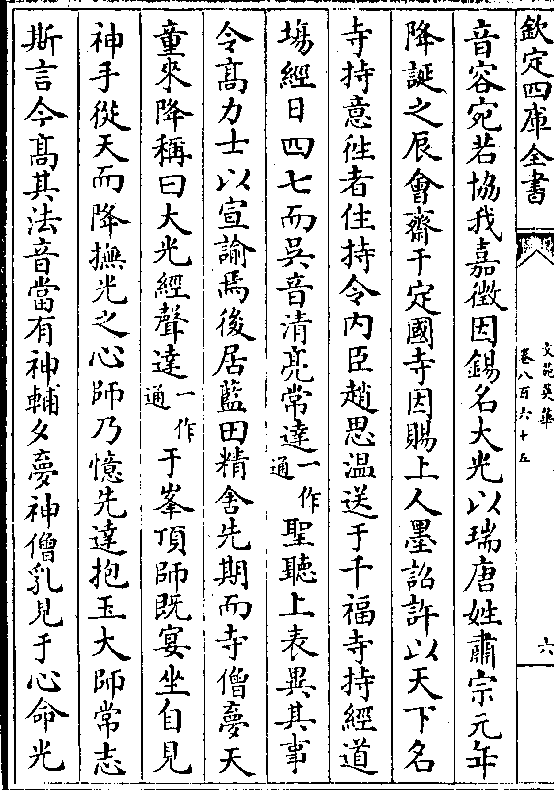 欽定四庫全書
文苑英華
卷八百六十五
六
音容宛若協我嘉徴因錫名大光以瑞唐姓肅宗元年
降誕之辰會齋于定國寺因賜上人墨詔許以天下名
寺持意徃者住持令内臣趙思温送于千福寺持經道
塲經日四七而吳音清亮常達一作通聖聽上表異其事
令髙力士以宣諭焉後居藍田精舍先期而寺僧夢天
童來降稱曰大光經聲達一作通于峯頂師既宴坐自見
神手從天而降撫光之心師乃憶先達抱玉大師常志
斯言今髙其法音當有神輔夕夢神僧乳見于心命光